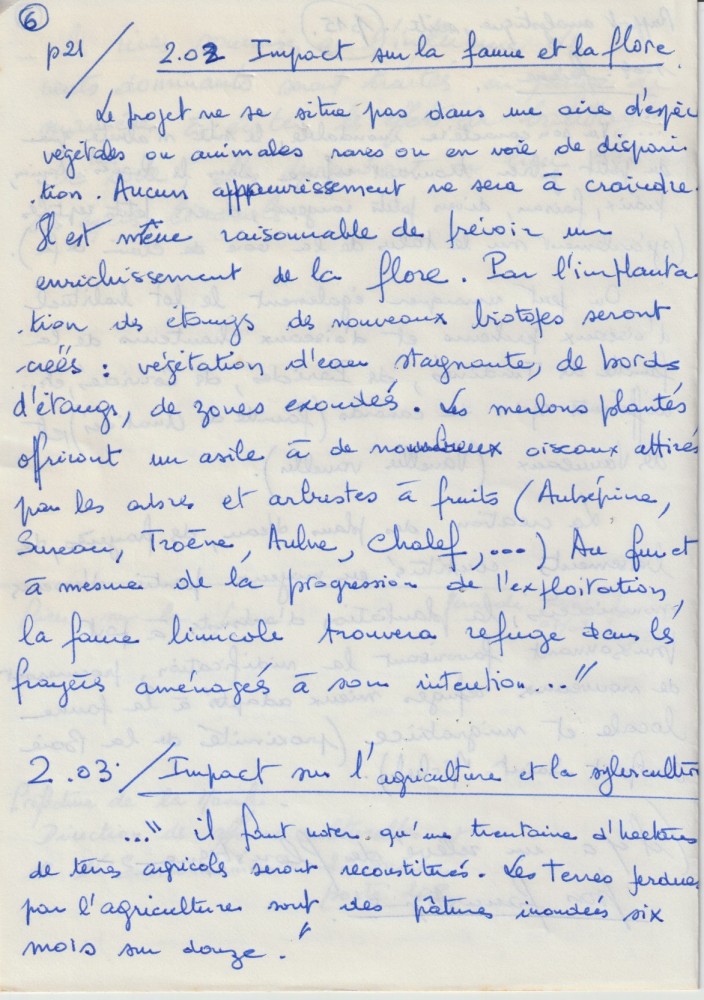 6
p21 / 2.02 Impact sur la faune et la flore.
Le projet ne se situe pas dans une aire d'espèc
végétales ou animales rares ou en voie de dispari-
-tion. Aucun appauvrissement ne sera à craindre.
Il est même raisonnable de prévoir un
enrichissement de la flore. Par l'implanta
-tion des étangs de nouveaux biotopes seront
créés : végétation d'eau stagnante, de bords
d'étangs, de zones exondées. Les merlons plantés
offriront un asile à de nombreux oiseaux attirés
par les arbres et arbustes à fruits (Aubépine,
Sureau, Troène, Aulne, Chalef,...) Au fur et
à mesure de la progression de l'exploitation,
la faune limicole trouvera refuge dans les
frayères aménagées à son intention..."
2.03. / Impact sur l'agriculture et la sylviculture
..." il faut noter qu'une trentaine d'hectares
de terres agricoles seront reconstitués. Les Terres perdues
par l'agriculture sont des pâtures inondées six
mois sur douze."